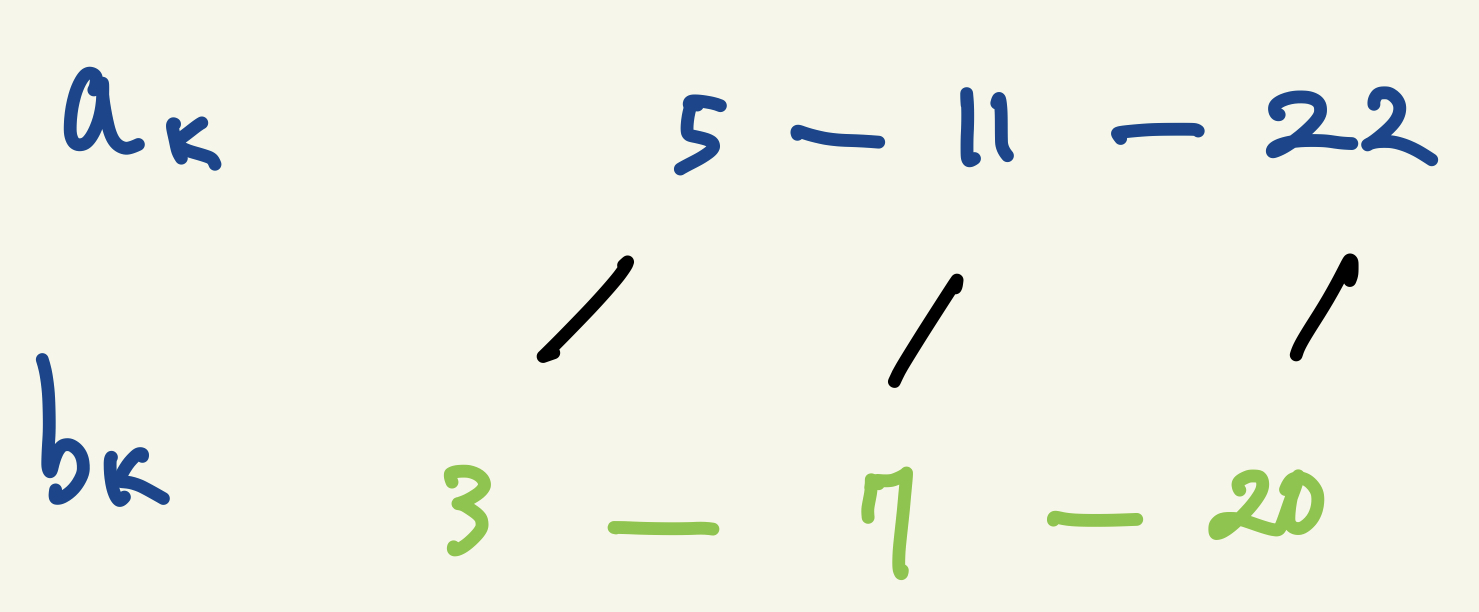 aₖ 5 — 11 — 22
/ / /
bₖ 3 — 7 — 20